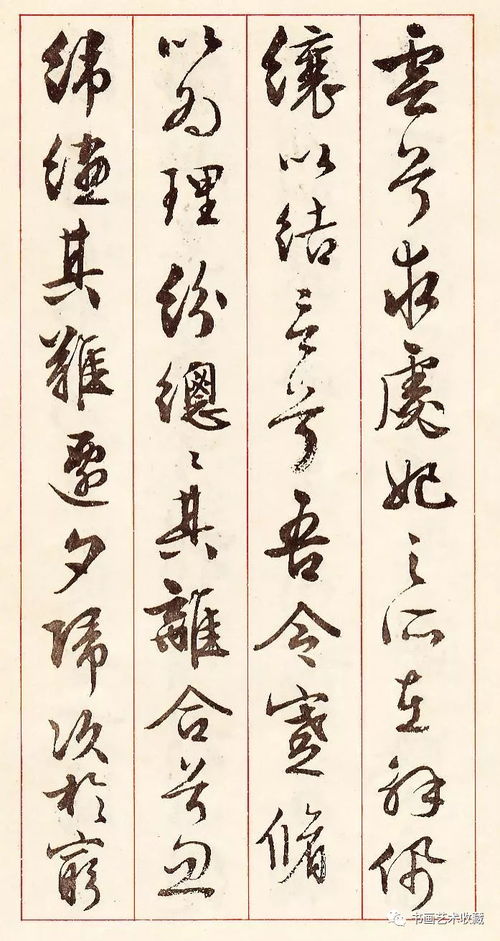 雲兮求虙妃之所在解佩
纕以結言兮吾令蹇脩
以為理紛總〻其離合兮忽
緯繣其難遷夕歸次於窮
书画艺术收藏